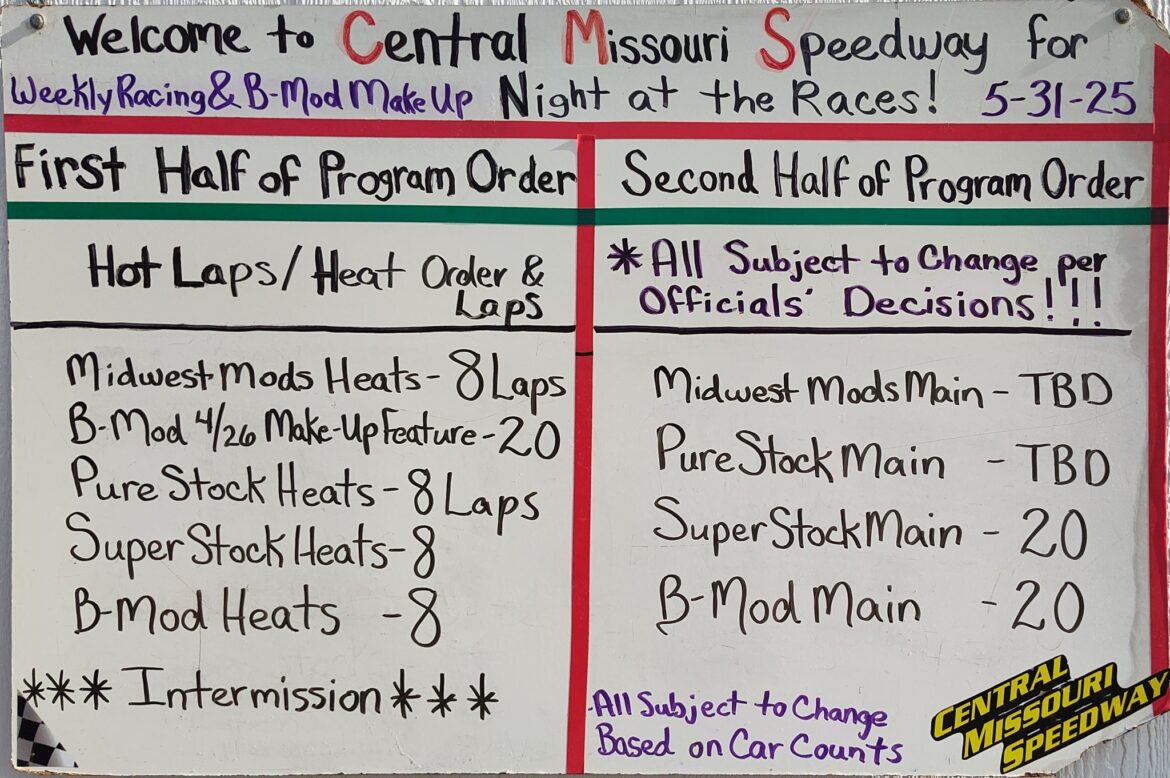 Welcome to Central Missouri Speedway for
Weekly Racing & B-Mod Make Up Night at the Races! 5-31-25
First Half of Program Order
Hot Laps/Heat Order &
Laps
Midwest Mods Heats - 8 Laps
B-Mod 4/26 Make-Up Feature - 20
Pure Stock Heats - 8 Laps
Super Stock Heats - 8
B-Mod Heats - 8
*** Intermission ***
Second Half of Program Order
*All Subject to Change per
Officials' Decisions!!!
Midwest Mods Main - TBD
Pure Stock Main - TBD
Super Stock Main - 20
B-Mod Main - 20
All Subject to Change
Based on Car Counts
CENTRAL
MISSOURI
SPEEDWAY